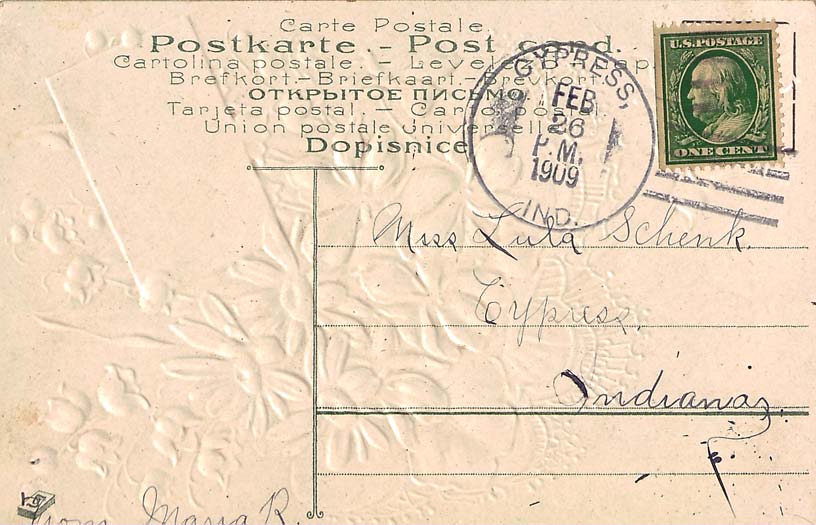 Carte Postale.
Postkarte. - Post card.
Cartolina postale. - Levelező-Lap.
Brefkort.-Briefkaart.-Brevkort
ОТКРЫТОЕ ПИСЬМО
Tarjeta postal. - Cartao postal.
Union postale universelle
Dopisnice
CYPRESS,
FEB
26
P.M.
1909
IND.
U.S. POSTAGE
ONE CENT
Miss Lula Schenk.
Cypress,
Indiana,
From Maria R.